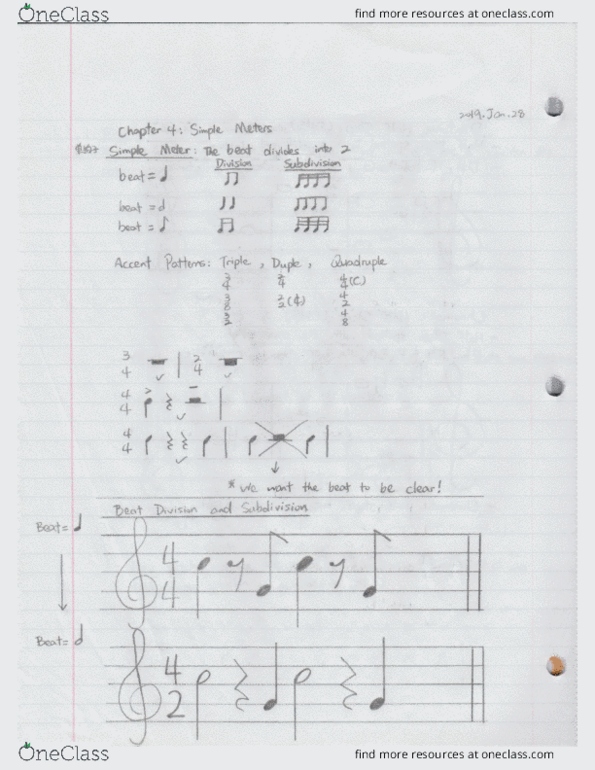 OneClass
find more resources at oneclass.com
2019.Jan.28
Chapter 4: Simple Meters
Simple Meter: The beat divides into 2
Division Subdivision
beat =
beat =
beat =
Accent Patterns: Triple, Duple, Quadruple
3/4 2/4 4/4 (C)
3/8 2/2 (¢) 4/2
3/2 4/8
3/4 2/4
4/4
4/4
* We want the beat to be clear!
Beat Division and Subdivision
Beat =
4/4
Beat =
4/2
OneClass
find more resources at oneclass.com